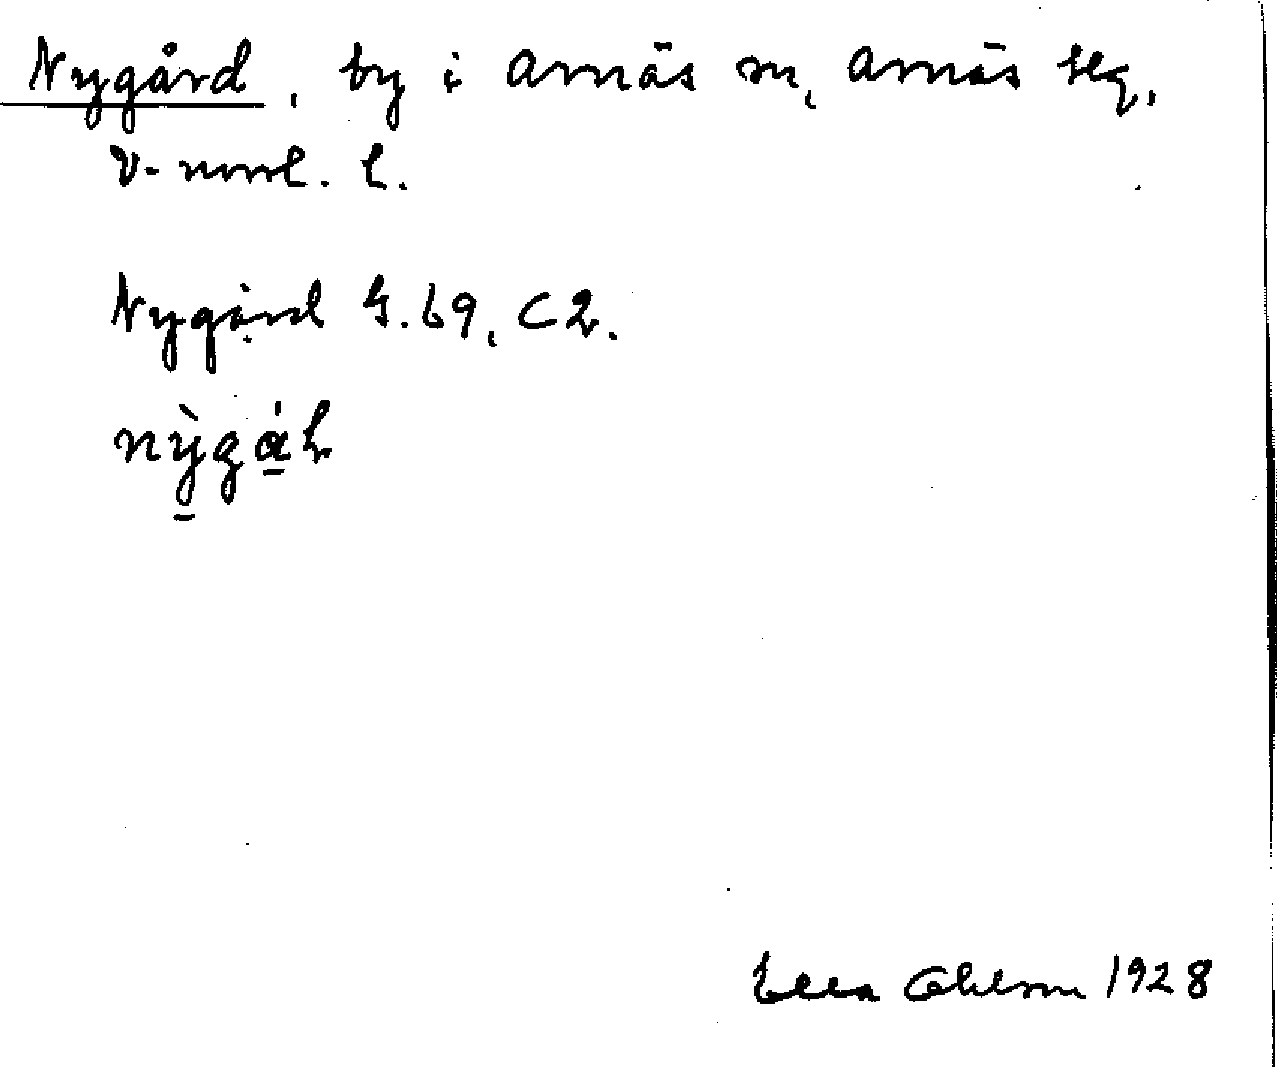 Nygård, by i Arnäs sn, Arnäs tlg,
V-norrl. l.
Nygård G.69, C2.
nỳgá
Ohlson 1928